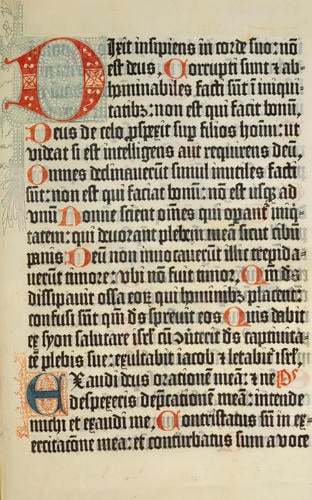 Dixit insipiens in corde suo: nõ
est deus, Corrupti sunt & ab-
hominabiles facti sũt ĩ iniqui-
tatibꝫ: non est qui facit bonũ,
Deus de celo ꝓspexit sup filios hoĩm: ut
videat si est intelligens aut requirens deũ,
Omnes declinauerũt simul inutiles facti
sũt: non est qui faciat bonũ: nõ est usqꝫ ad
vnũ Nonne scient oẽs qui operant̃ iniq̃-
tatem: qui deuorant plebem meã sicut cibũ
panis Deũ non inuocauerũt illic trepida-
uerũt timore: vbi nõ fuit timor, Qm̃ dˢ
dissipauit ossa eoꝝ qui hominibꝫ placent:
confusi sũt qm̃ dˢ spreuit eos Quis dabit
ex syon salutare isrl̃ cũ ꝯũterit dˢ captiuita-
tẽ plebis sue: exultabit iacob & letabit̃ isrl̃
Exaudi deus orationẽ meã: & ne Pˢ
despexeris dep̃cationẽ meã: intende
michi et exaudi me, Contristatus sũ in ex-
ercitacõne mea: et conturbatus sum a voce